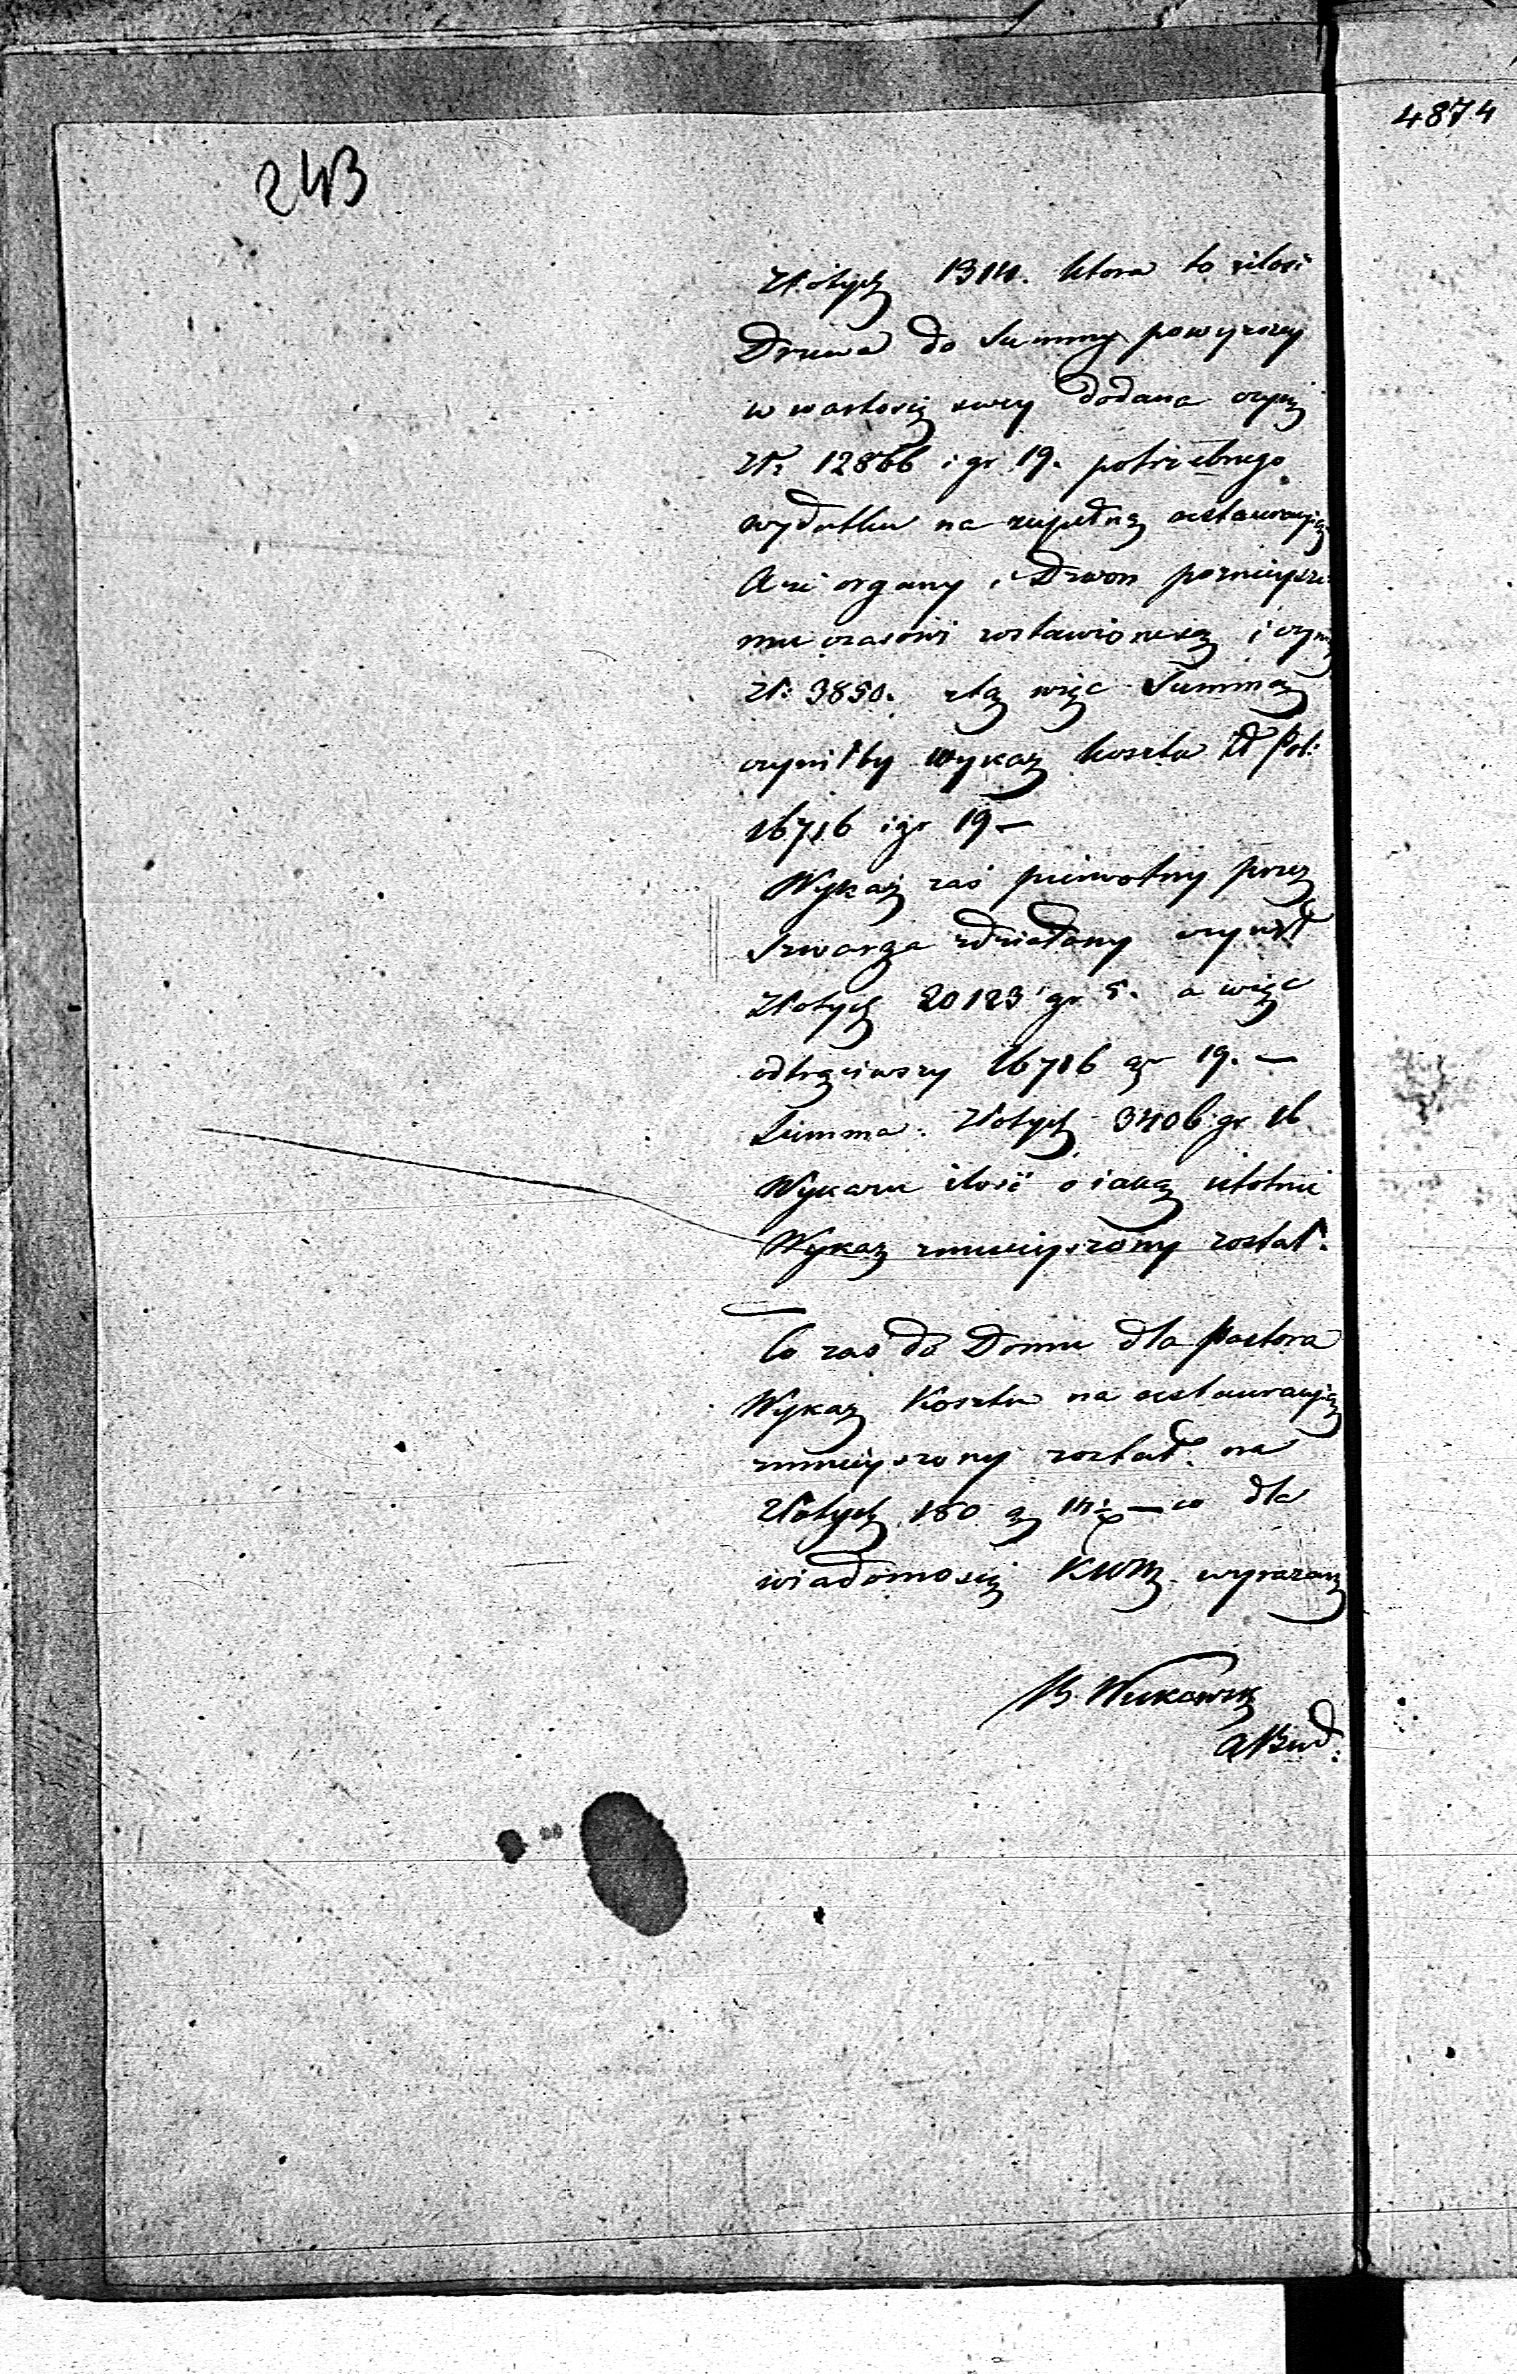 243
4874
Złotych 1314. ktora to ilość
Drzewa do Summy powyższey
w wartości swey dodana czyni
Zł: 12866 i gr 19. potrzebnego
wydatku na zupełną restauracyią
A że organy i Dzwon poznieysze
mu czasowi zostawione są i czynią
Zł: 3850. z tą więc Summą
czyniłby wykaz koszta Zł Pol:
16716 i gr 19 —
Wykaz zaś pierwotny przez
Szwarza zdziałany czynił
Złotych 20123 gr 5. a więc
odtrąciwszy 16716 gr 19. —
Summa. Złotych 3406 gr 16
Wykazu ilość o iaką istotnie
Wykaz zmnieyszony został.
Co zaś do Domu dla Pastora
Wykaz Kosztu na restauracyią
zmnieyszony został na
Złotych 180 gr 14 — co dla
wiadomości KWM wyrażam